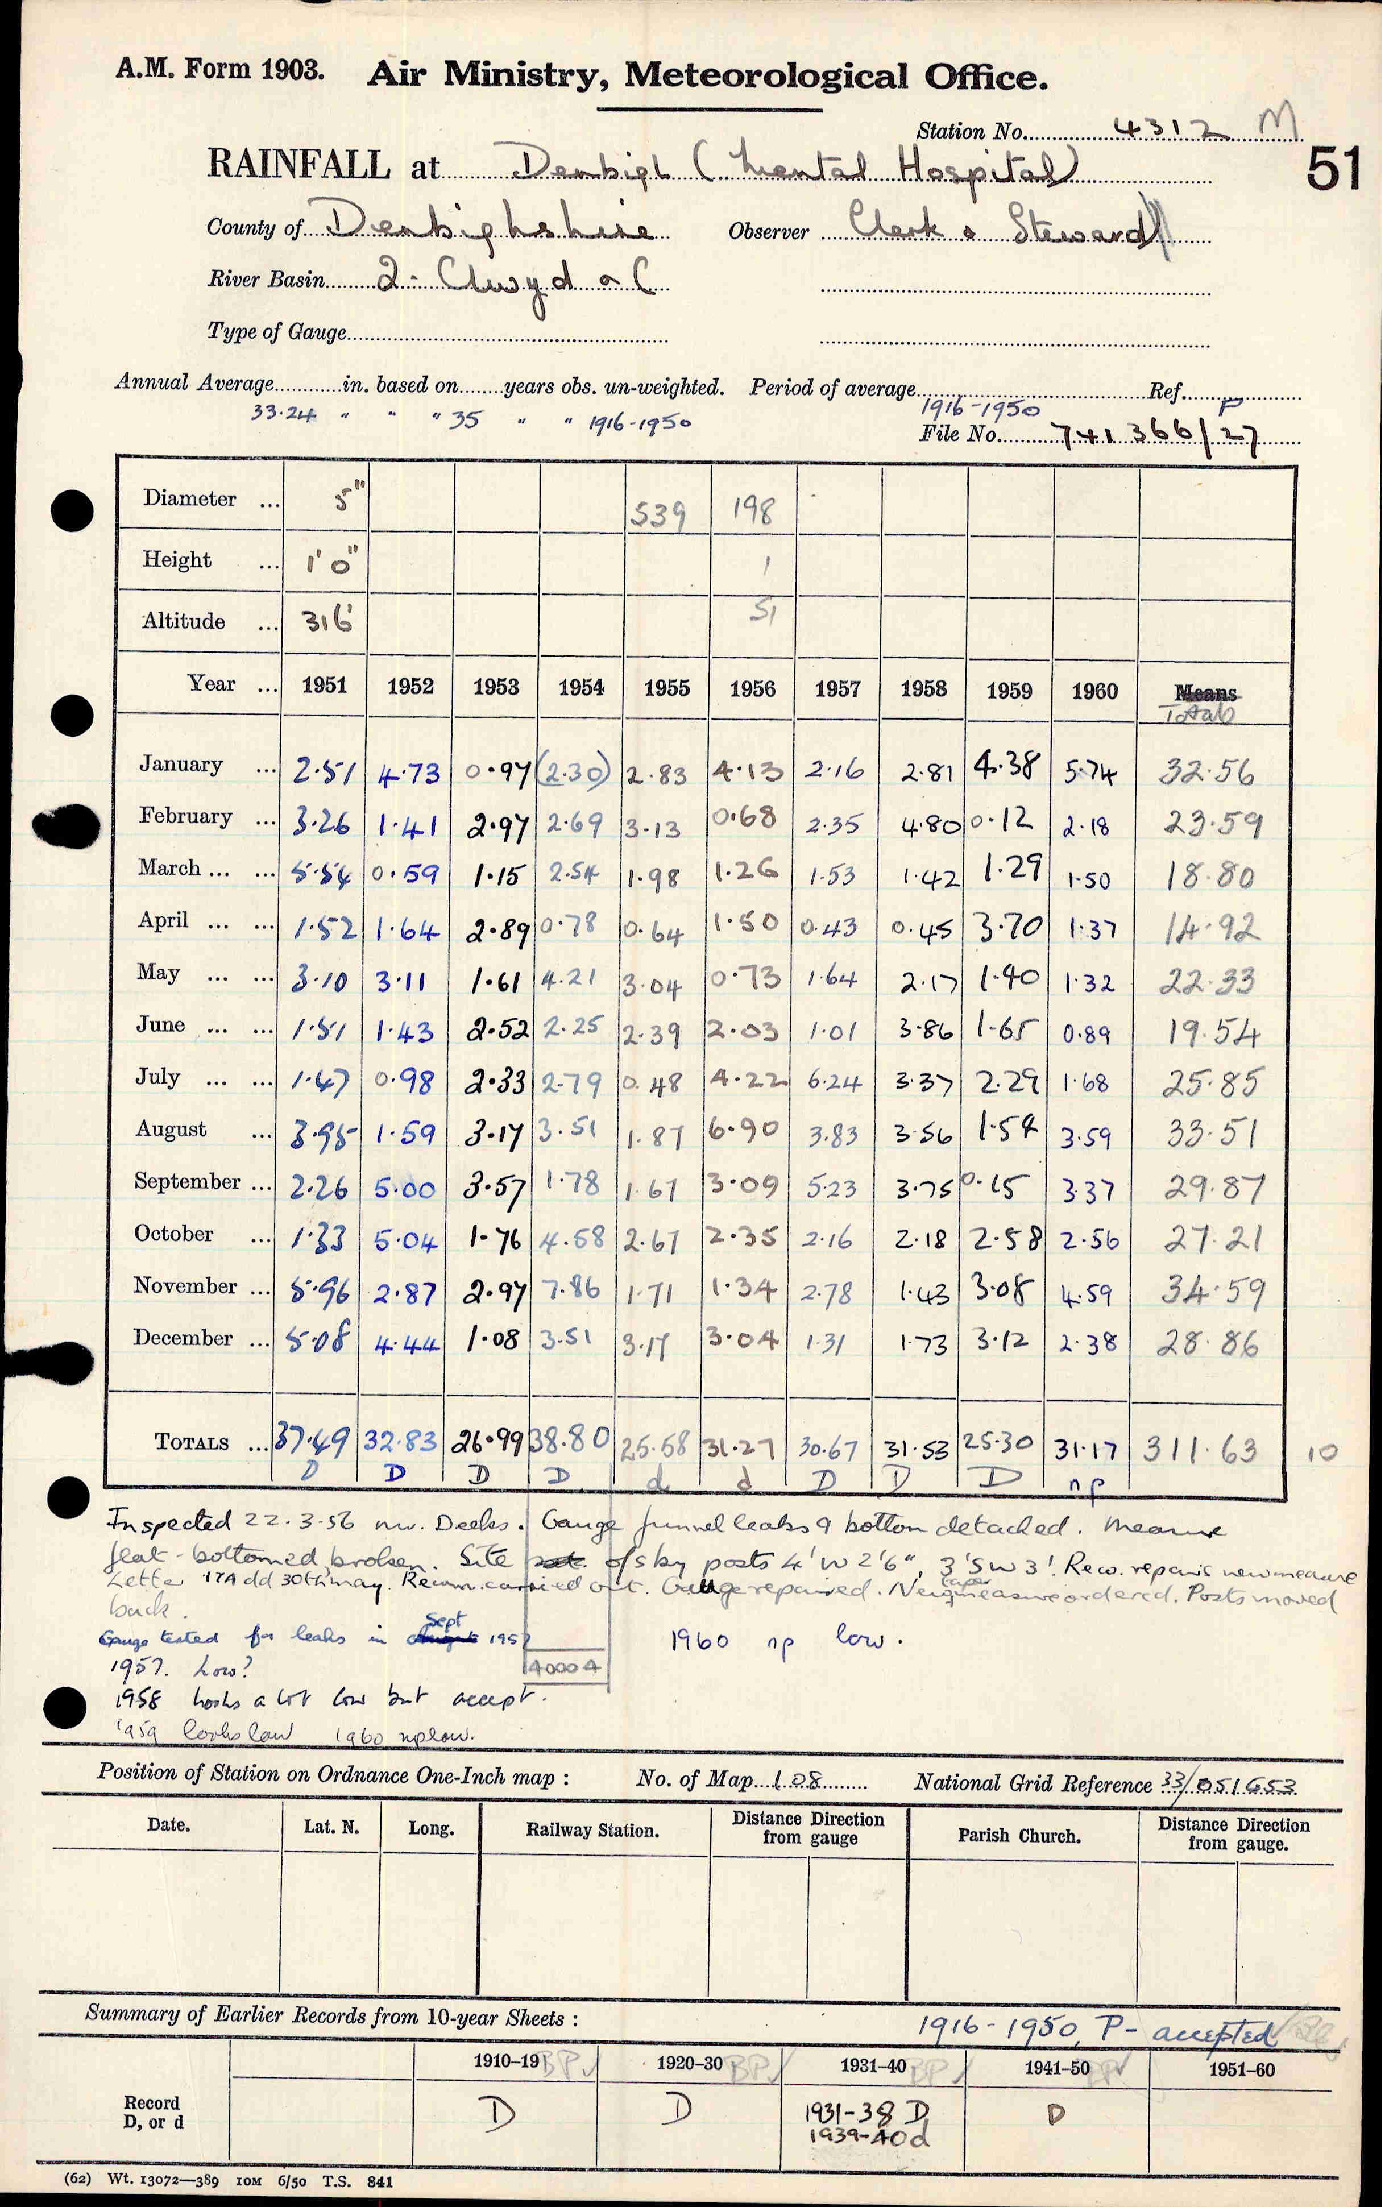 A.M. Form 1903. Air Ministry, Meteorological Office.
Station No. 4312 M
51
RAINFALL at Denbigh (Mental Hospital)
County of Denbighshire Observer Clerk & Steward
River Basin 2. Clwyd a C
Type of Gauge
Annual Average in. based on years obs. un-weighted. Period of average Ref.
33.24 " " " 35 " " 1916-1950 1916-1950 P
File No. 741366/27
Diameter ... 5" 539 198
Height ... 1'0" 1
Altitude ... 316' 51
Year ... 1951 1952 1953 1954 1955 1956 1957 1958 1959 1960 Means
Totals
January ... 2.51 4.73 0.97 (2.30) 2.83 4.13 2.16 2.81 4.38 5.74 32.56
February ... 3.26 1.41 2.97 2.69 3.13 0.68 2.35 4.80 0.12 2.18 23.59
March ... ... 5.54 0.59 1.15 2.54 1.98 1.26 1.53 1.42 1.29 1.50 18.80
April ... ... 1.52 1.64 2.89 0.78 0.64 1.50 0.43 0.45 3.70 1.37 14.92
May ... ... 3.10 3.11 1.61 4.21 3.04 0.73 1.64 2.17 1.40 1.32 22.33
June ... ... 1.51 1.43 2.52 2.25 2.39 2.03 1.01 3.86 1.65 0.89 19.54
July ... ... 1.47 0.98 2.33 2.79 0.48 4.22 6.24 3.37 2.29 1.68 25.85
August ... 3.95 1.59 3.17 3.51 1.87 6.90 3.83 3.56 1.54 3.59 33.51
September ... 2.26 5.00 3.57 1.78 1.67 3.09 5.23 3.75 0.15 3.37 29.87
October ... 1.33 5.04 1.76 4.58 2.67 2.35 2.16 2.18 2.58 2.56 27.21
November ... 5.96 2.87 2.97 7.86 1.71 1.34 2.78 1.43 3.08 4.59 34.59
December ... 5.08 4.44 1.08 3.51 3.17 3.04 1.31 1.73 3.12 2.38 28.86
TOTALS ... 37.49 32.83 26.99 38.80 25.58 31.27 30.67 31.53 25.30 31.17 311.63 10
D D D D d d D D D np
Inspected 22.3.56 Gauge funnel leaks & bottom detached. Measure
flat-bottomed, broken. Site ofs by posts 4' W 2'6", 3' SW 3'. Rec. repairs new measure
Letter dd 30th May. Recom. carried out. Gauge repaired. New taper measure ordered. Posts moved
back.
Gauge tested for leaks in Sept 1957
1957. Low? 40004 1960 np low.
1958 looks a bit low but accept.
1959 looks low 1960 np low.
Position of Station on Ordnance One-Inch map : No. of Map 108 National Grid Reference 33/051653
Date. Lat. N. Long. Railway Station. Distance Direction from gauge Parish Church. Distance Direction from gauge.
Summary of Earlier Records from 10-year Sheets :
1916-1950, P- accepted
1910-19 BP✓ 1920-30 BP✓ 1931-40 BP✓ 1941-50 BP✓ 1951-60
Record
D, or d
D D 1931-38 D D
1939-40 d
(62) Wt. 13072—389 10M 6/50 T.S. 841